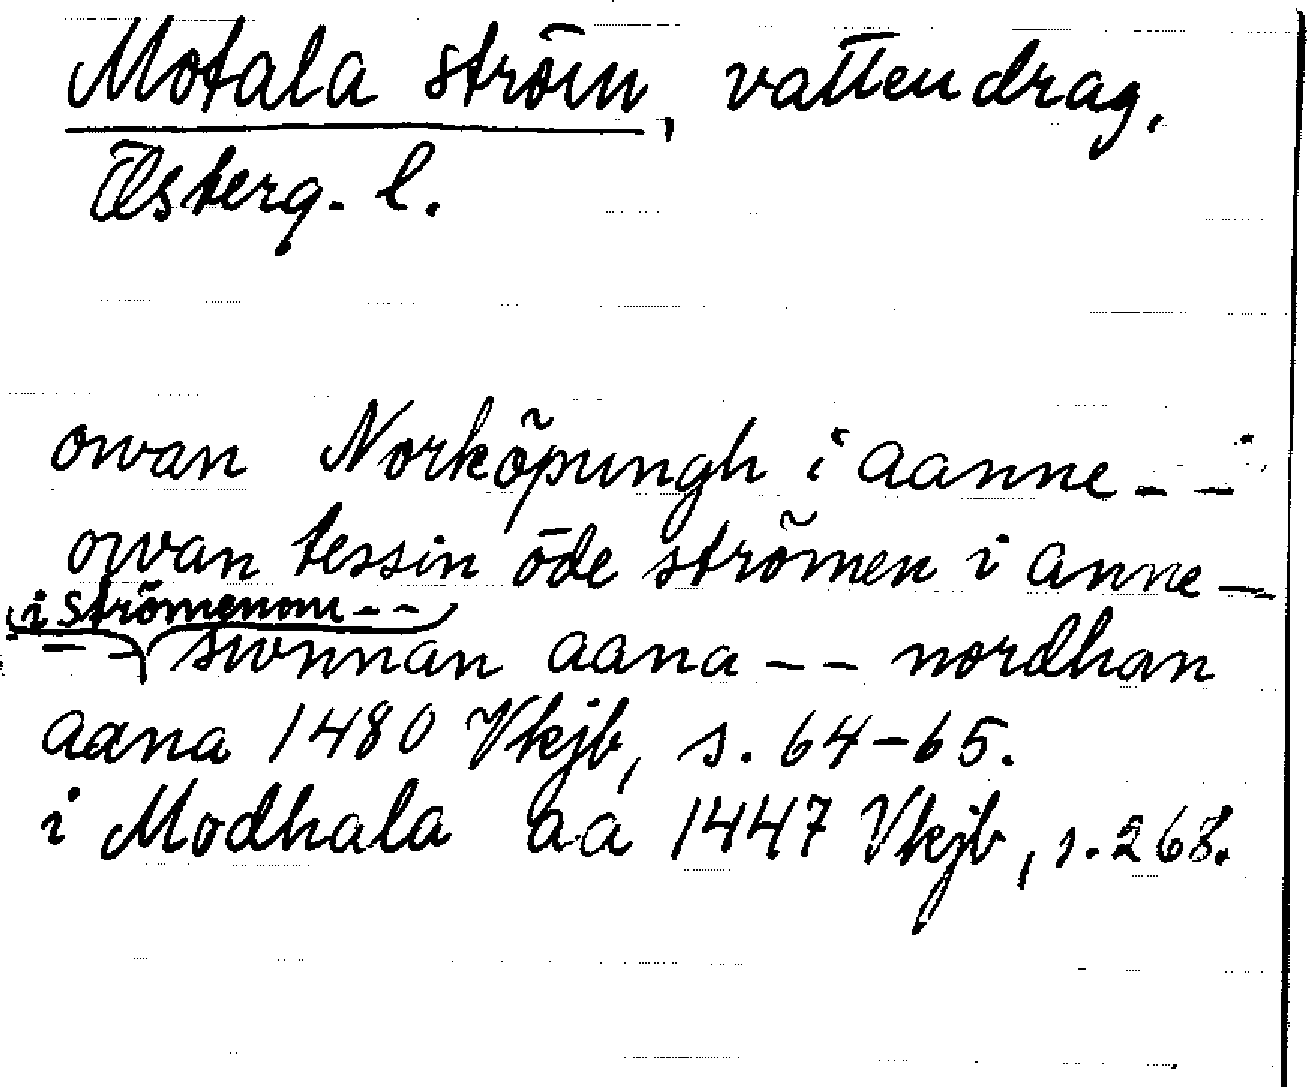 Motala ström, vattendrag,
Österg. l.
owan Norköpungh i aanne - -
owan tessin öde strömen i anne -
i strömenom - -
- - swnnan aana - - nordhan
aana 1480 Vkjb, s. 64-65.
i Modhala aa 1447 Vkjb, s. 268.